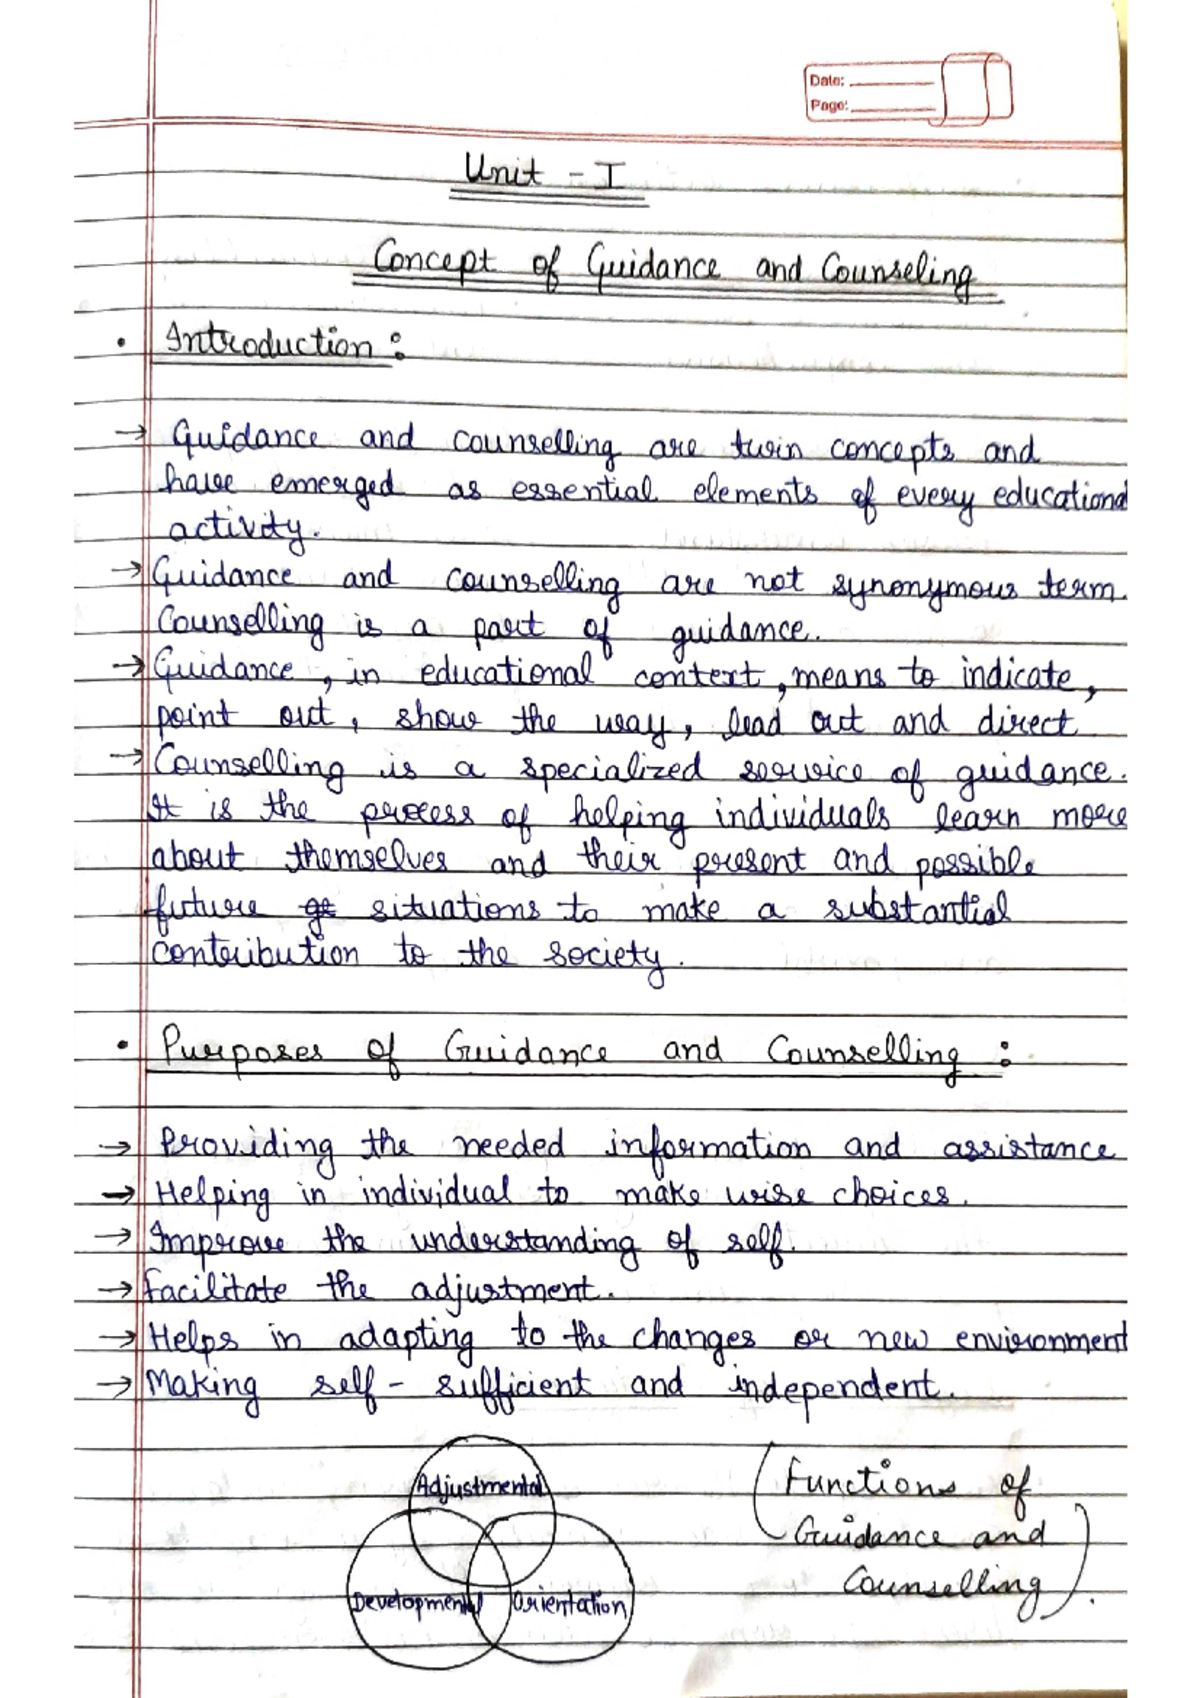 Date:
Page:
Unit - I
Concept of Guidance and Counseling
• Introduction :
→ Guidance and counselling are twin concepts and
have emerged as essential elements of every educational
activity.
→ Guidance and counselling are not synonymous term.
Counselling is a part of guidance.
→ Guidance, in educational context, means to indicate,
point out, show the way, lead out and direct
→ Counselling is a specialized service of guidance.
It is the process of helping individuals learn more
about themselves and their present and possible
future situations to make a substantial
contribution to the society.
• Purposes of Guidance and Counselling :
→ Providing the needed information and assistance
→ Helping in individual to make wise choices.
→ Improve the understanding of self.
→ Facilitate the adjustment.
→ Helps in adapting to the changes or new environment
→ Making self-sufficient and independent.
Adjustmental
Developmental
Orientation
(Functions of
Guidance and
Counselling).